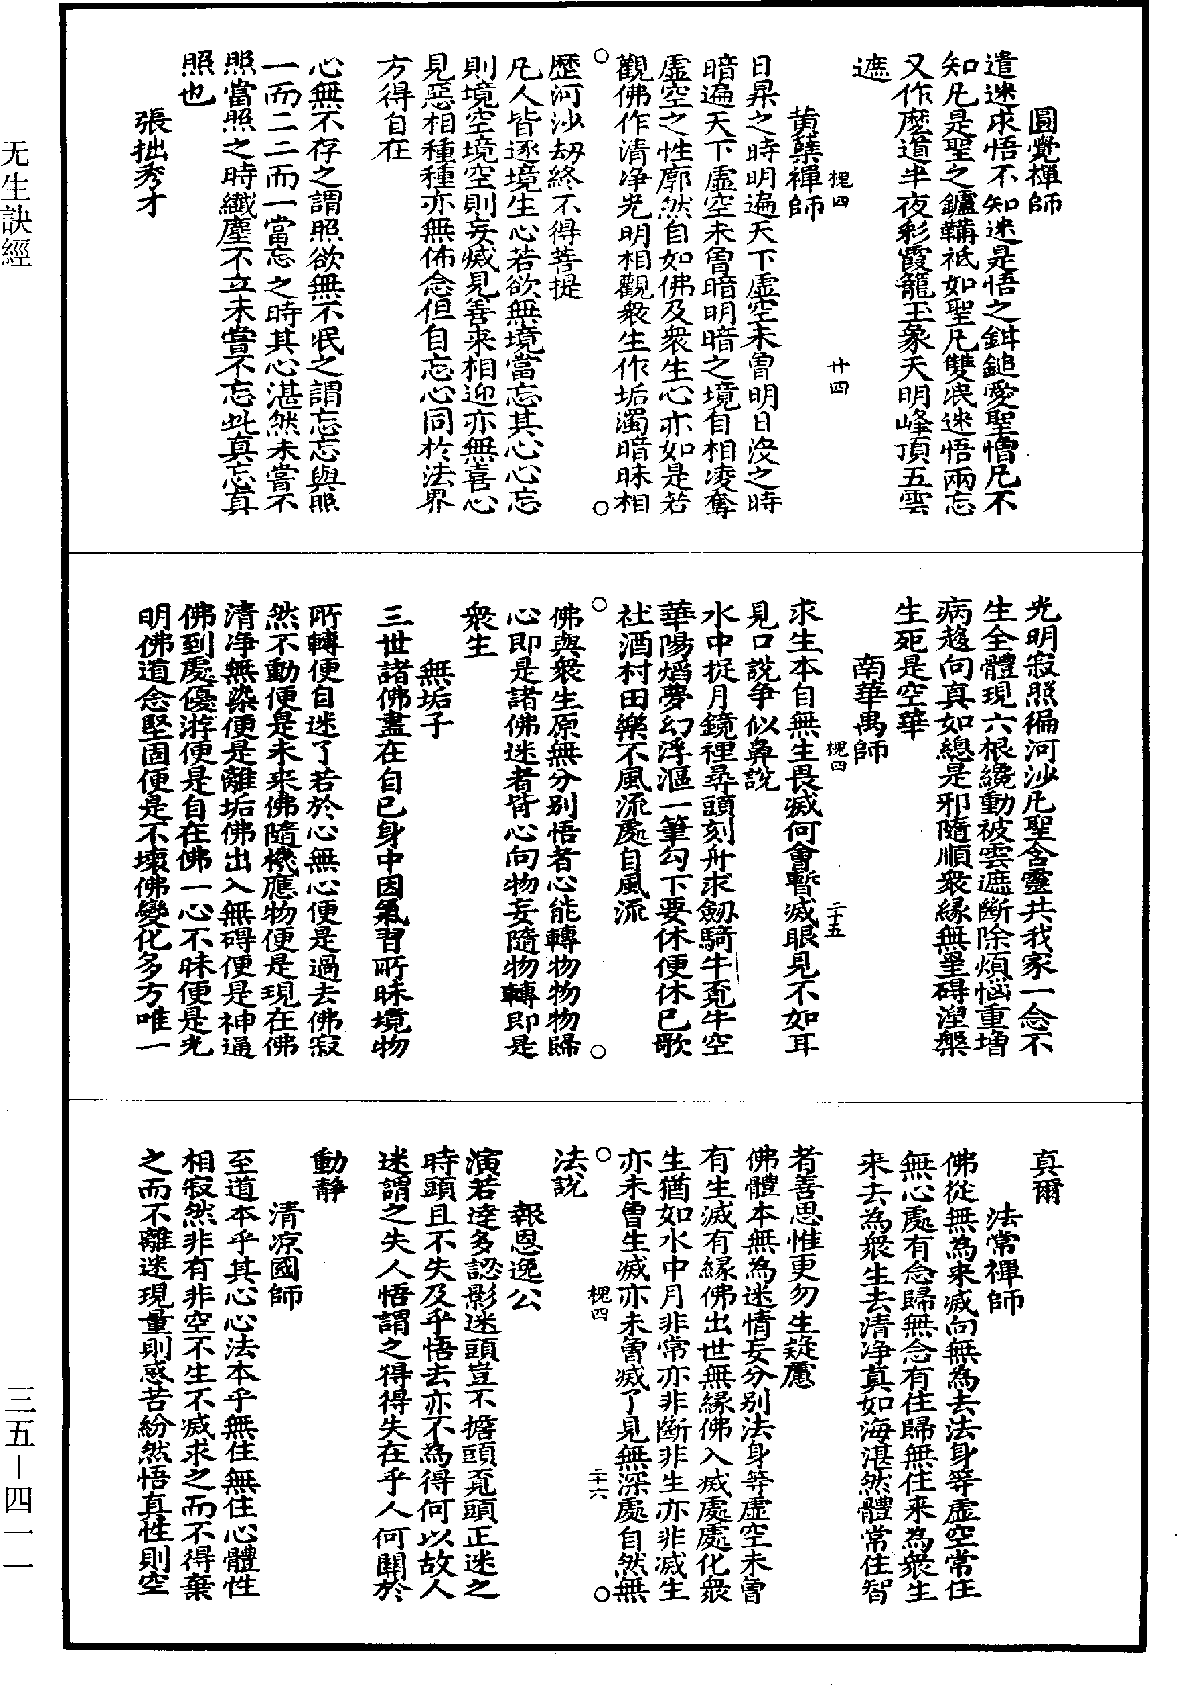 圓覺禪師
遣迷求悟不知迷是悟之鉗鎚愛聖憎凡不
知凡是聖之鑪鞴祇如聖凡雙泯迷悟兩忘
又作麼道半夜彩霞籠玉象天明峰頂五雲
遮
槐四
廿四
黃蘗禪師
日昇之時明遍天下虛空未曾明日沒之時
暗遍天下虛空未曾暗明暗之境自相凌奪
虛空之性廓然自如佛及衆生心亦如是若
觀佛作清净光明相觀衆生作垢濁暗昧相
歷河沙劫終不得菩提
凡人皆逐境生心若欲無境當忘其心心忘
則境空境空則妄滅見善來相迎亦無喜心
見惡相種種亦無怖念但自忘心同於法界
方得自在
心無不存之謂照欲無不泯之謂忘忘與照
一而二二而一當忘之時其心湛然未嘗不
照當照之時纖塵不立未嘗不忘此真忘真
照也
張拙秀才
光明寂照徧河沙凡聖含靈共我家一念不
生全體現六根纔動被雲遮斷除煩惱重增
病趨向真如總是邪隨順衆緣無罣碍涅槃
生死是空華
南華禺師
槐四
二十五
求生本自無生畏滅何會暫滅眼見不如耳
見口說爭似鼻說
水中捉月鏡裡尋頭刻舟求劔騎牛覔牛空
華陽熖夢幻浮漚一筆勾下要休便休巴歌
社酒村田樂不風流處自風流
佛與衆生原無分别悟者心能轉物物物歸
心即是諸佛迷者皆心向物妄隨物轉即是
衆生
無垢子
三世諸佛盡在自已身中因氣習所昧境物
所轉便自迷了若於心無心便是過去佛寂
然不動便是未來佛隨機應物便是現在佛
清净無染便是離垢佛出入無碍便是神通
佛到處優游便是自在佛一心不昧便是光
明佛道念堅固便是不壞佛變化多方唯一
真爾
法常禪師
佛從無為來滅向無為去法身等虛空常住
無心處有念歸無念有住歸無住来為衆生
来去為衆生去清净真如海湛然體常住智
者善思惟更勿生疑慮
佛體本無為迷情妄分别法身等虛空未曾
有生滅有緣佛出世無緣佛入滅處處化衆
生猶如水中月非常亦非斷非生亦非滅生
亦未曾生滅亦未曾滅了見無深處自然無
槐四
二十六
法說
報恩逸公
演若達多認影迷頭豈不擔頭覔頭正迷之
時頭且不失及乎悟去亦不為得何以故人
迷謂之失人悟謂之得得失在乎人何關於
動静
清凉國師
至道本乎其心心法本乎無住無住心體性
相寂然非有非空不生不滅求之而不得棄
之而不離迷現量則惑苦紛然悟真性則空
无生訣經
三五－四一一